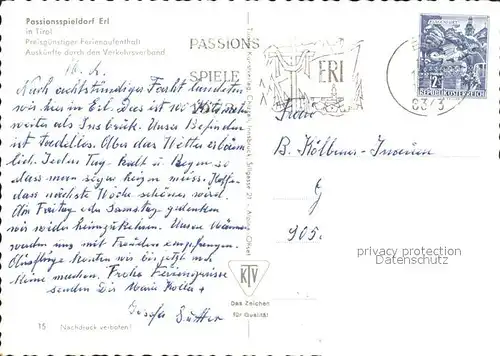 Passionsspieldorf Erl
in Tirol
Preisgünstiger Ferienaufenthalt
Auskünfte durch den Verkehrsverband
PASSIONS
SPIELE
ERL
2S
REPUBLIK ÖSTERREICH
6343
Nach achtstündiger Fahrt landeten
wir hier in Erl. Dies ist 100 Kilometer
weiter als Insbrück. Unser Befinden
ist tadellos. Aber das Wetter erbärm
lich. Jeden Tag kalt u Regen so
dass man sogar heizen muss. Hoffe
dass nächste Woche schöner wird.
Am Freitag oder Samstag gedenken
wir wieder heimzukehren. Unsere Männer
werden uns mit Freuden empfangen.
Ausflüge konnten wir bis jetzt noch
kleine machen. Frohe Feriengrüsse
senden Dir Maria +
Josefa Sutter
Frau
B. Kölbener-
9
905.
KTV
Das Zeichen
für Qualität
privacy protection
Datenschutz
15 Nachdruck verboten!